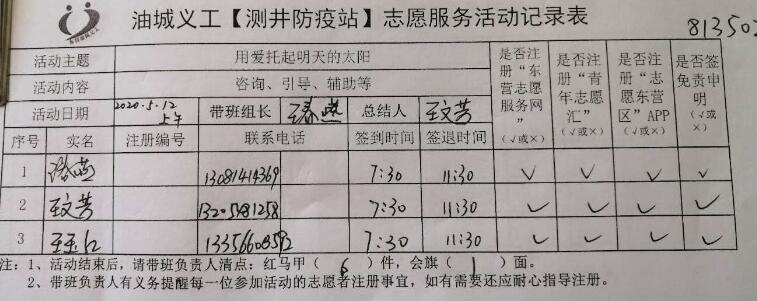 油城义工【测井防疫站】志愿服务活动记录表
81350
活动主题 用爱托起明天的太阳 是否注册“东营志愿服务网”(√或×) 是否注册“青年志愿汇”(√或×) 是否注册“志愿东营区”APP(√或×) 是否签免责申明(√或×)
活动内容 咨询、引导、辅助等
活动日期 2020.5.12上午 带班组长 王春燕 总结人 王文芳
序号 实名 注册编号 联系电话 签到时间 签退时间
1 13081414369 7:30 11:30 √ √ √ √
2 王文芳 13205481258 7:30 11:30 √ √ √ √
3 7:30 11:30 √ √ √ √
注:1、活动结束后,请带班负责人清点:红马甲(6)件,会旗(1)面。
2、带班负责人有义务提醒每一位参加活动的志愿者注册事宜,如有需要还应耐心指导注册。